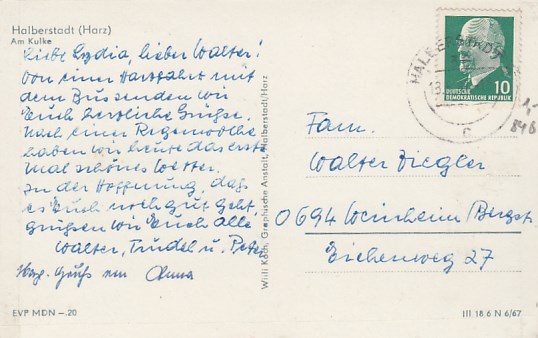 Halberstadt (Harz)
Am Kulke
Liebe Lydia, lieber Walter!
Von einer Harzfahrt mit
dem Bus senden wir
Euch herzliche Grüße.
Nach einer Regenwoche
haben wir heute das erste
Mal schönes Wetter.
In der Hoffnung, daß
es Euch noch gut geht
grüßen wir Euch alle
Walter, Trudel u. Peter
Herzl. Gruß von Anna
EVP MDN –.20
Willi Koch, Graphische Anstalt, Halberstadt/Harz
HALBERSTADT
13.
c
DEUTSCHE
DEMOKRATISCHE REPUBLIK
10
846
Fam.
Walter Ziegler
0694 Weinheim/Bergstr
Eichenweg 27
III 18 6 N 6/67